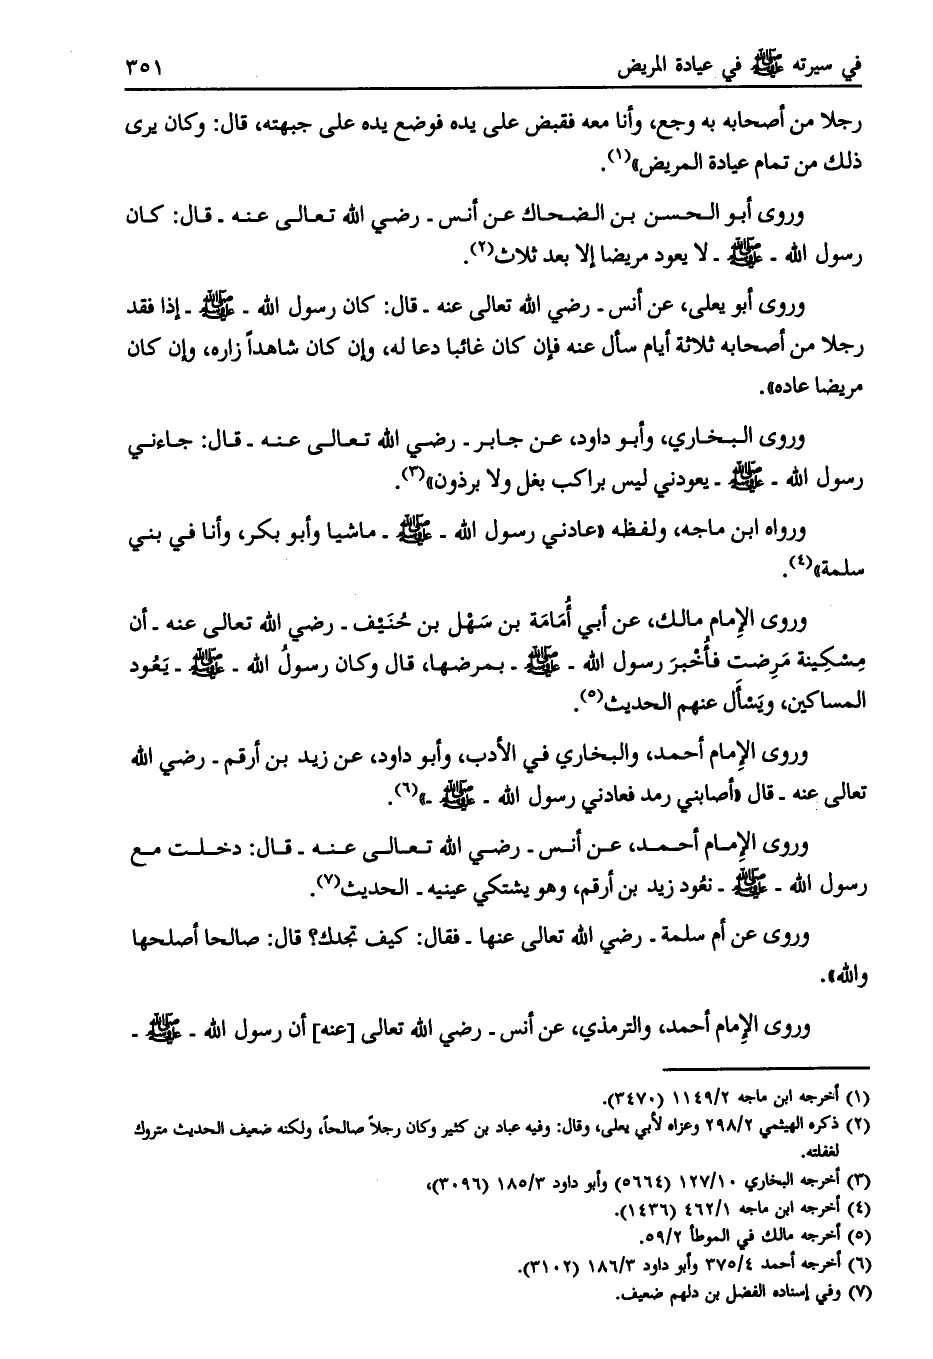 في سيرته ﷺ في عيادة المريض ٣٥١
رجلا من أصحابه به وجع، وأنا معه فقبض على يده فوضع يده على جبهته، قال: وكان يرى
ذلك من تمام عيادة المريض»(١).
وروى أبو الحسن بن الضحاك عن أنس ـ رضي الله تعالى عنه ـ قال: كان
رسول الله ـ ﷺ ـ لا يعود مريضا إلا بعد ثلاث(٢).
وروى أبو يعلى، عن أنس ـ رضي الله تعالى عنه ـ قال: كان رسول الله ـ ﷺ ـ إذا فقد
رجلا من أصحابه ثلاثة أيام سأل عنه فإن كان غائبا دعا له، وإن كان شاهداً زاره، وإن كان
مريضا عاده».
وروى البخاري، وأبو داود، عن جابر ـ رضي الله تعالى عنه ـ قال: جاءني
رسول الله ـ ﷺ ـ يعودني ليس براكب بغل ولا برذون»(٣).
ورواه ابن ماجه، ولفظه «عادني رسول الله ـ ﷺ ـ ماشيا وأبو بكر، وأنا في بني
سلمة»(٤).
وروى الإمام مالك، عن أبي أُمَامَة بن سَهْل بن حُنَيْف ـ رضي الله تعالى عنه ـ أن
مِسْكِينة مَرِضت فأُخْبرَ رسول الله ـ ﷺ ـ بمرضها، قال وكان رسولُ الله ـ ﷺ ـ يَعُود
المساكين، ويَسْأَل عنهم الحديث(٥).
وروى الإمام أحمد، والبخاري في الأدب، وأبو داود، عن زيد بن أرقم ـ رضي الله
تعالى عنه ـ قال «أصابني رمد فعادني رسول الله ـ ﷺ ـ»(٦).
وروى الإمام أحمد، عن أنس ـ رضي الله تعالى عنه ـ قال: دخلت مع
رسول الله ـ ﷺ ـ نعُود زيد بن أرقم، وهو يشتكي عينيه ـ الحديث(٧).
وروى عن أم سلمة ـ رضي الله تعالى عنها ـ فقال: كيف تجدك؟ قال: صالحا أصلحها
والله».
وروى الإمام أحمد، والترمذي، عن أنس ـ رضي الله تعالى [عنه] أن رسول الله ـ ﷺ ـ
(١) أخرجه ابن ماجه ١١٤٩/٢ (٣٤٧٠).
(٢) ذكره الهيثمي ٢٩٨/٢ وعزاه لأبي يعلى، وقال: وفيه عباد بن كثير وكان رجلاً صالحاً، ولكنه ضعيف الحديث متروك
لغفلته.
(٣) أخرجه البخاري ١٢٧/١٠ (٥٦٦٤) وأبو داود ١٨٥/٣ (٣٠٩٦)،
(٤) أخرجه ابن ماجه ٤٦٢/١ (١٤٣٦).
(٥) أخرجه مالك في الموطأ ٥٩/٢.
(٦) أخرجه أحمد ٣٧٥/٤ وأبو داود ١٨٦/٣ (٣١٠٢).
(٧) وفي إسناده الفضل بن دلهم ضعيف.